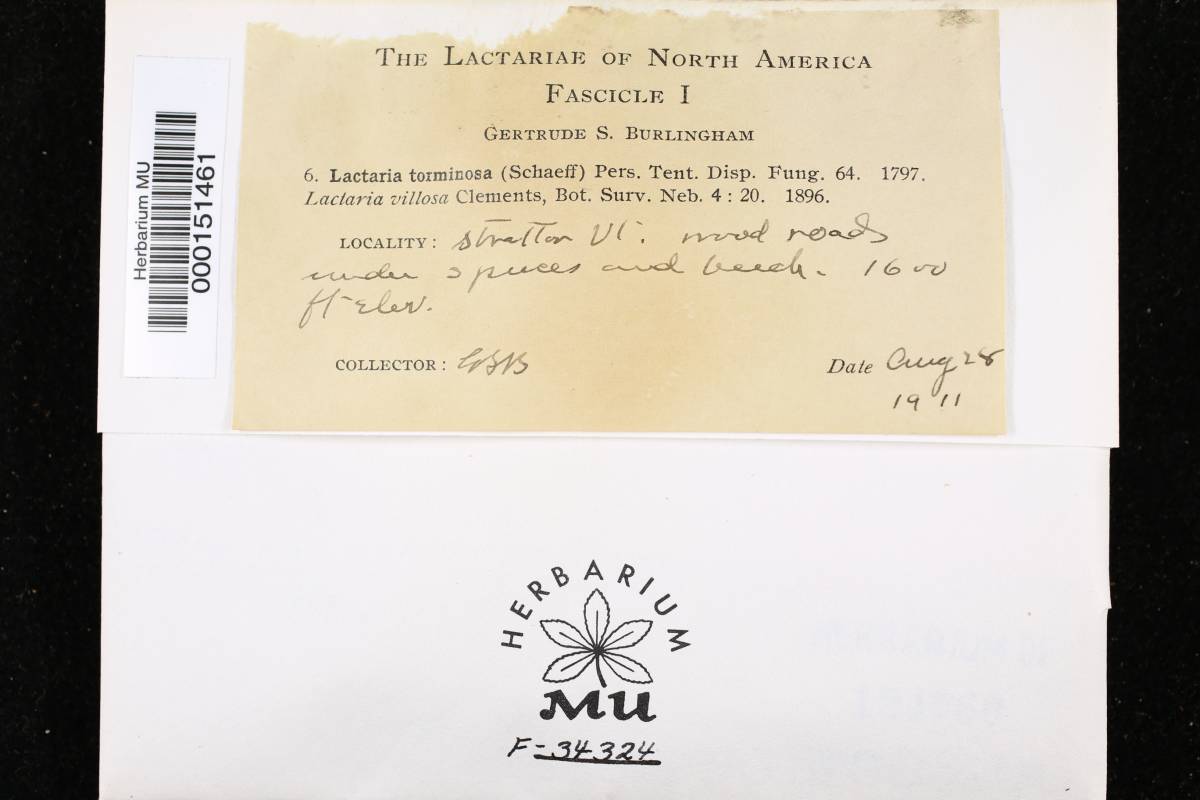 THE LACTARIAE OF NORTH AMERICA
FASCICLE I
GERTRUDE S. BURLINGHAM
6. Lactaria torminosa (Schaeff) Pers. Tent. Disp. Fung. 64. 1797.
Lactaria villosa Clements, Bot. Surv. Neb. 4 : 20. 1896.
LOCALITY: Stratton Vt. wood roads
under spruces and beech. 1600
ft elev.
COLLECTOR: GSB
Date Aug 28
1911
Herbarium MU
000151461
HERBARIUM
MU
F-34324